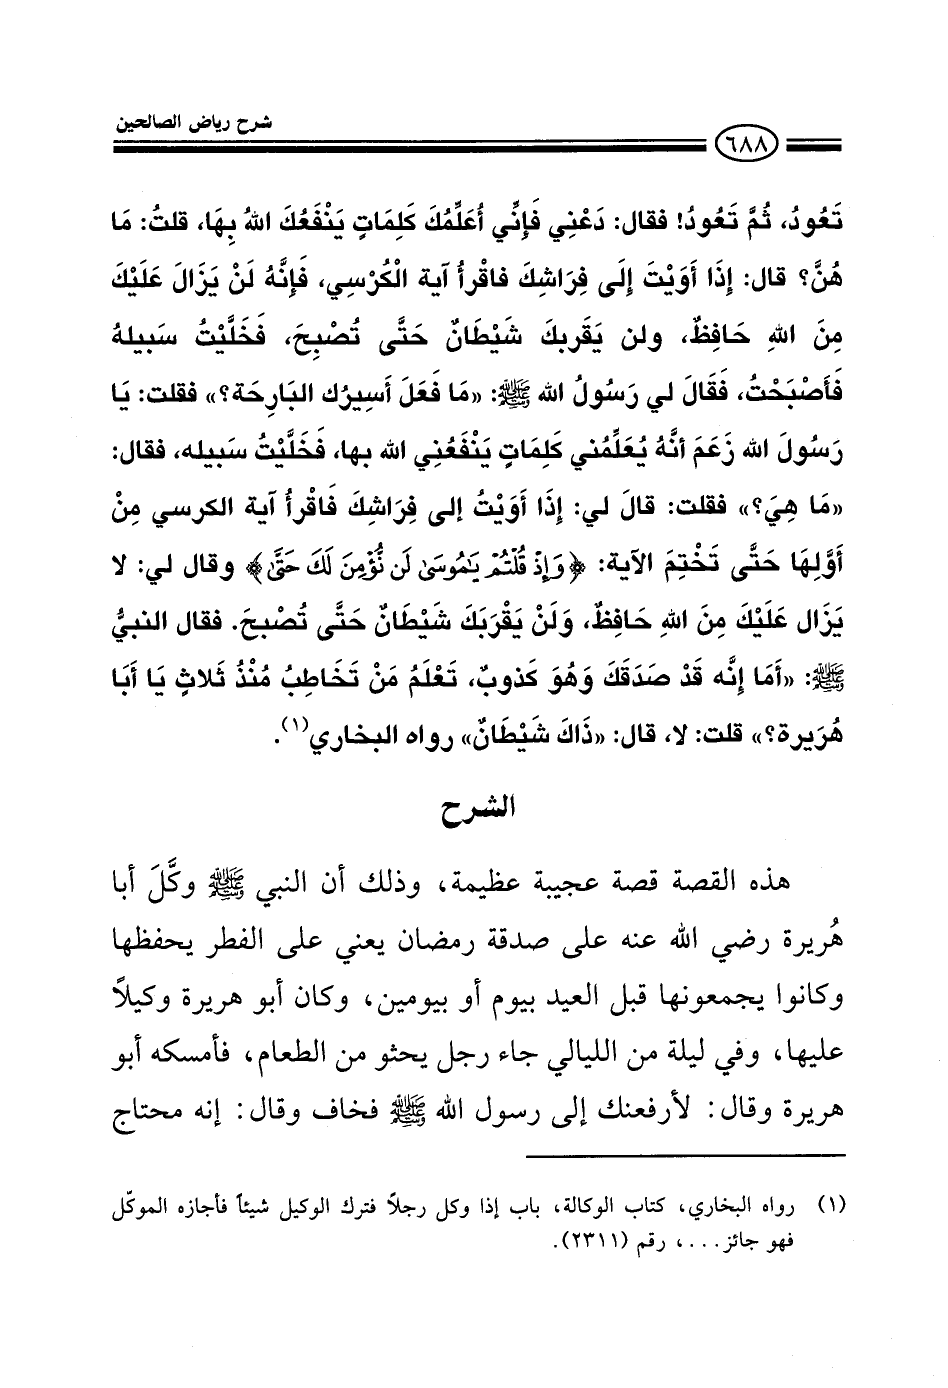 شرح رياض الصالحين
٦٨٨
تَعُودُ، ثُمَّ تَعُودُ! فقال: دَعْنِي فَإِنِّي أُعَلِّمُكَ كَلِمَاتٍ يَنْفَعُكَ اللهُ بِهَا، قلتُ: مَا
هُنَّ؟ قال: إِذَا أَوَيْتَ إِلَى فِرَاشِكَ فاقْرأُ آية الْكُرْسِي، فَإِنَّهُ لَنْ يَزَالَ عَلَيْكَ
مِنَ اللهِ حَافِظٌ، ولن يَقَربكَ شَيْطَانٌ حَتَّى تُصْبِحَ، فَخَلَّيْتُ سَبيلهُ
فَأَصْبَحْتُ، فَقَالَ لي رَسُولُ الله ﷺ: «مَا فَعَلَ أَسيرُك البَارِحَة؟» فقلت: يَا
رَسُولَ الله زَعَمَ أنَّهُ يُعَلِّمُني كَلِمَاتٍ يَنْفَعُنِي الله بها، فَخَلَّيْتُ سَبيله، فقال:
«مَا هِيَ؟» فقلت: قالَ لي: إِذَا أَوَيْتُ إلى فِرَاشِكَ فَاقْرأُ آية الكرسي مِنْ
أَوَّلِهَا حَتَّى تَخْتِمَ الآية: ﴿وَإِذْ قُلْتُمْ يَٰمُوسَىٰ لَن نُّؤْمِنَ لَكَ حَتَّىٰ﴾ وقال لي: لا
يَزَال عَلَيْكَ مِنَ اللهِ حَافِظٌ، وَلَنْ يَقْرَبَكَ شَيْطَانٌ حَتَّى تُصْبحَ. فقال النبيُّ
ﷺ: «أَمَا إِنَّه قَدْ صَدَقَكَ وَهُوَ كَذوبٌ، تَعْلَمُ مَنْ تَخَاطِبُ مُنْذُ ثَلاثٍ يَا أَبَا
هُرَيرة؟» قلت: لا، قال: «ذَاكَ شَيْطَانٌ» رواه البخاري(١).
الشرح
هذه القصة قصة عجيبة عظيمة، وذلك أن النبي ﷺ وكَّلَ أبا
هُريرة رضي الله عنه على صدقة رمضان يعني على الفطر يحفظها
وكانوا يجمعونها قبل العيد بيوم أو بيومين، وكان أبو هريرة وكيلاً
عليها، وفي ليلة من الليالي جاء رجل يحثو من الطعام، فأمسكه أبو
هريرة وقال: لأرفعنك إلى رسول الله ﷺ فخاف وقال: إنه محتاج
(١) رواه البخاري، كتاب الوكالة، باب إذا وكل رجلاً فترك الوكيل شيئاً فأجازه الموكّل
فهو جائز...، رقم (٢٣١١).